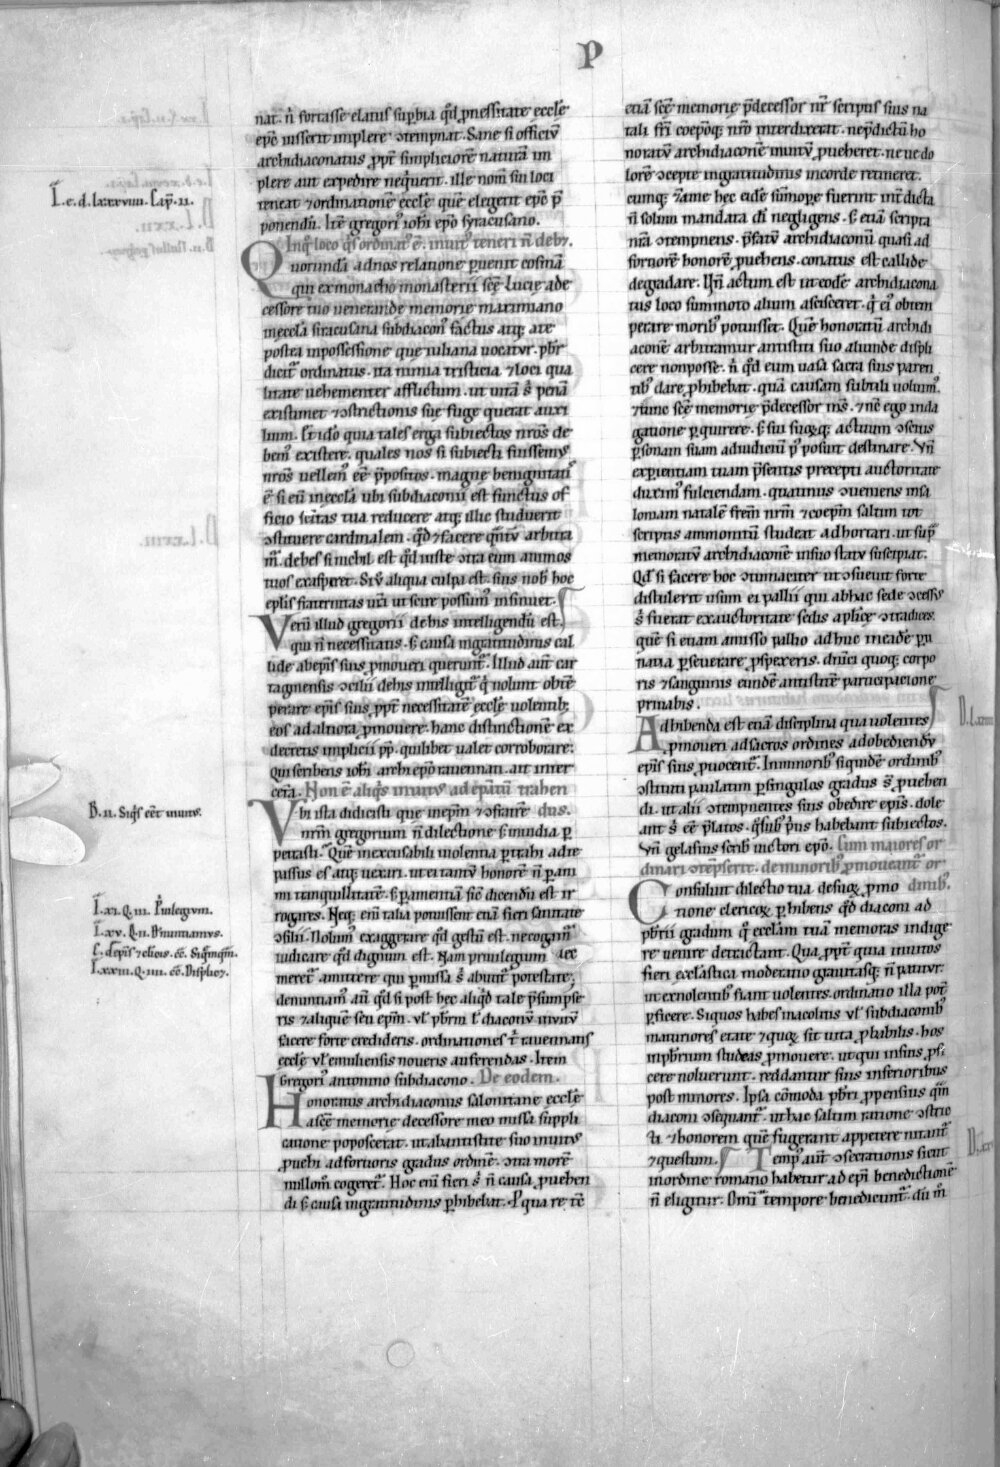 P
nat. n̄ fortasse elatus supbia qd̄ p necessitate eccl̄e
ep̄c iusserit implere ɔtempnat. Sane si officiū
archidiaconatus ꝓpt̄ simpliciorē naturā im
plere aut expedire neq̇uerit. ille nom̄ sui loci
teneat ⁊ ordinationē eccl̄e que elegerit ep̄c p̄
ponendū. Itē gregori᷒ ioh̄i ep̄o syracusano.
Quorundā ad nos relatione ꝑuenit cosmā
qui ex monacho monasterii sc̄e Lucie a de
cessore tuo uenerande memorie maximiano
in eccl̄a siracusana subdiacon᷒ factus atq; a te
postea in possessione que iuliana uocatur. pb̄r
dicit̄ ordinatus. ita nimia tristicia ⁊ loci qua
litate uehementer afflictum. ut uitā s̄ penā
existimet ⁊ ɔstrictionis sue fuge querat auxi
lium. Et ido quia tales erga subiectos nr̄os de
bem᷒ existere. quales nos si subiecti fuissemus
nr̄os uellem᷒ ee p̄positos. magne benignitati᷒
ē si eū in eccl̄a ubi subdiaconii est functus of
ficio sc̄itas tua reducere atq; illic studuerit
ɔstituere cardinalem. qd̄ ⁊ facere q̄ntū arbitra
m᷒. debes si nichil est qd̄ iuste ɔtra eum animos
tuos exasperet. Sīu aliqua culpa est. suis nob᷒ hoc
ep̄lis fraternitas ur̄a ut scire possim᷒ insinuet.
Verū illud gregorii de his intelligendū est.
qui n̄ necessitatis. s; causa ingratitudinis cal
lide ab ep̄is suis ꝓmoueri querunt̄. Illud aut̄ car
taginensis ɔcilii de his intelligit̄ q̇ nolunt obtē
perare ep̄is suis ꝓpt̄ necessitatē eccl̄e uolentib;
eos ad altiora ꝓmouere. hanc distinctionē ex
decretis implicii pp̄. quilibet ualet corroborare.
Qui scribens ioh̄i archiep̄o rauennan. ait inter
cet̄a. Non ē aliq̇s inuitus ad ep̄atū trahen
Vbi ista didicisti que in ep̄m ⁊ ɔfratrē dus.
nr̄m gregorium n̄ dilectione s; inuidia p
petrasti. Quē inexcusabili uiolentia ꝑtrahi a te
passus es atq; uexari. ut ei tam ū honorē n̄ ꝑ ani
mi tranquillitatē. s; ꝑ amentiā sic̄ dicendū est ir
rogares. Neq; enī talia potuissent etiā fieri sanitate
ɔsilii. Nolum᷒ exaggerare qd̄ gestū est. ne cogam᷒
iudicare qd̄ dignum est. Nam priuilegium
meret̄ amittere qui ꝑmissa s̄ abutit̄ potestate.
denuntiam᷒ aū qd̄ si post hec aliqd̄ tale p̄sumpse
ris ⁊ aliquē seu ep̄m. ul̄ pb̄rm ł diaconū inuitū
facere forte credideris. ordinationes t̄ rauennatis
eccl̄e ul̄ emiliensis noueris auferendas. Item
Gregori᷒ antonino subdiacono. De eodem.
Honoratus archidiaconus salonitane eccl̄e
a sc̄e memorie decessore meo missa suppli
catione poposcerat. ut ab antistite suo inuitus
ꝓuehi ad fortioris gradus ordinē. ɔtra morē
nullom᷒ cogeret̄. Hoc enī fieri s̄ n̄ causa ꝓuehen
di s; causa ingratitudinis ꝑhibebat. Pro qua re tc̄
etiā sc̄e memorie p̄decessor nr̄ scriptis suis na
tali fr̄i coep̄oq; nr̄o interdixerat. ne p̄dictū ho
noratū archidiaconē inuitū ꝓueheret. ne ue do
lorē ɔcepte ingratitudinis in corde retineret.
cumq; ⁊ a me hec eadē summoꝑe fuerint int̄dicta
n̄ solum mandata di negligens. s; etiā scripta
nr̄a ɔtempnens. p̄fatū archidiaconū quasi ad
fortiorē honorē ꝓuehens. conatus est callide
degradare. Vn̄ actum est ut eodē archidiacona
tus loco summoto alium ascisceret. q̇ ei᷒ obtem
perare morib᷒ potuisset. Quē honoratū archidi
aconē arbitramur antistiti suo aliunde displi
cere non posse. n̄ qd̄ eum uasa sacra suis paren
tib᷒ dare ꝓhibebat. quā causam subtili uolum᷒.
⁊ tunc sc̄e memorie p̄decessor m̄s. ⁊ nc̄ ego inda
gatione ꝑquirere. s; sui suoꝝ actuum ɔscius
ꝑsonam suam ad iudiciū p᷒ posuit destinare. Vn̄
expientiam tuam p̄sentis precepti auctoritate
duxim᷒ fulciendam. quatinus ɔueniens in sa
lomam natalē frēm nr̄m ⁊ coep̄m saltim tot
scriptis ammonitū studeat adhortari. ut sup̄
memoratū archidiaconē in suo statu suscipiat.
Qd̄ si facere hoc ɔtumaciter ut ɔsueuit forte
distulerit usum ei pallii qui ab hac sede ɔcessus
s̄ fuerat ex auctoritate sedis ap̄lice ɔtradices.
quē si etiam amisso pallio adhuc in eadē ꝑti
natia ꝑseuerare ꝓspexeris. dn̄ici quoq; corpo
ris ⁊ sanguinis eundē antistitē participatione
priuabis.
Adhibenda est etiā disciplina qua uolentes
ꝓmoueri ad sacros ordines ad obediendū
ep̄is suis ꝓuocent̄. In minorib᷒ siquidē ordinib᷒
ɔstituti paulatim ꝑ singulos gradus s̄ ꝓuehen
di. ut alii ɔtempnentes suis obedire ep̄is. dole
ant s̄ ee p̄latos. q̇s sub p̄us habebant subiectos.
Vn̄ gelasius scrib᷒ uictori ep̄o. Cum maiores or
dinari ɔtēpserit. de minorib᷒ ꝓmoueant̄ or
Consulut dilectio tua de suoꝝ ꝓmo dinib᷒.
tione clericoꝝ ꝑhibens qd̄ diaconi ad
pb̄rii gradum q̇ eccl̄iam tuā memoras indige
re uenire detractant. Qua ꝓpt̄ quia inuitos
fieri eccl̄astica moderatio grauitasq; n̄ patitur.
ut ex nolentib᷒ fiant uolentes. ordinatio illa pot̄
ꝑficere. Siquos habes in acolitis ul̄ subdiaconib᷒
maturiores etate ⁊ quoꝝ sit uita ꝓbabilis. hos
in pb̄rium studeas ꝓmouere. ut qui in suis ꝓfi
cere noluerunt. reddantur suis inferioribus
post minores. Ipsa cōmoda pb̄ri ꝓpensius qm̄
diaconi ɔsequant̄. ut hac saltim ratione ɔstric
ti ⁊ honorem quē fugerant appetere nitant̄
⁊ questum. Temp᷒ aut̄ ɔsecrationis sicut
in ordine romano habetur ad ep̄i benedictionē
n̄ eligitur. Om̄i t̄ tempore benedicunt̄. dū m᷒
I. e. d. lxxxviiii. Cap̄. ii.
D. ii. Siq̇s cēt inuitus.
I. xi. Q. iii. P̄uilegium.
I. xv. Q. ii. Denuntiamus.
C. d ep̄is ⁊ clicus. cc̄. Siq̇mq̇m.
I. xxiii. Q. iiii. cc̄. Displicet.